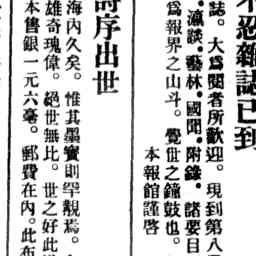 不忍雜誌已到
誌。大爲閱者所歡迎。現到第八
瀛談。藝林。國聞。附錄。諸要目
爲報界之山斗。覺世之鐘鼓也。
本報館謹啓
詩序出世
海內久矣。惟其墨寶則罕覩焉。
雄奇瑰偉。絕世無比。世之好此
本售銀一元六毫。郵費在內。此布